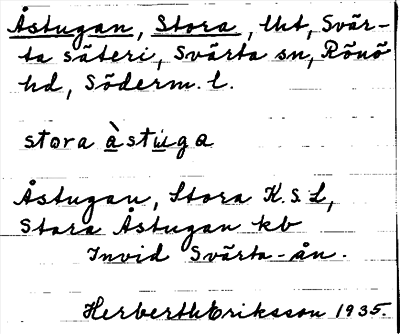 Åstugan, Stora, lht, Svär-
ta säteri, Svärta sn, Rönö
hd, Söderm. l.
stora àstuga
Åstugan, Stora K.S.L,
Stora Åstugan kb
Invid Svärta-ån.
Herberth Eriksson 1935.